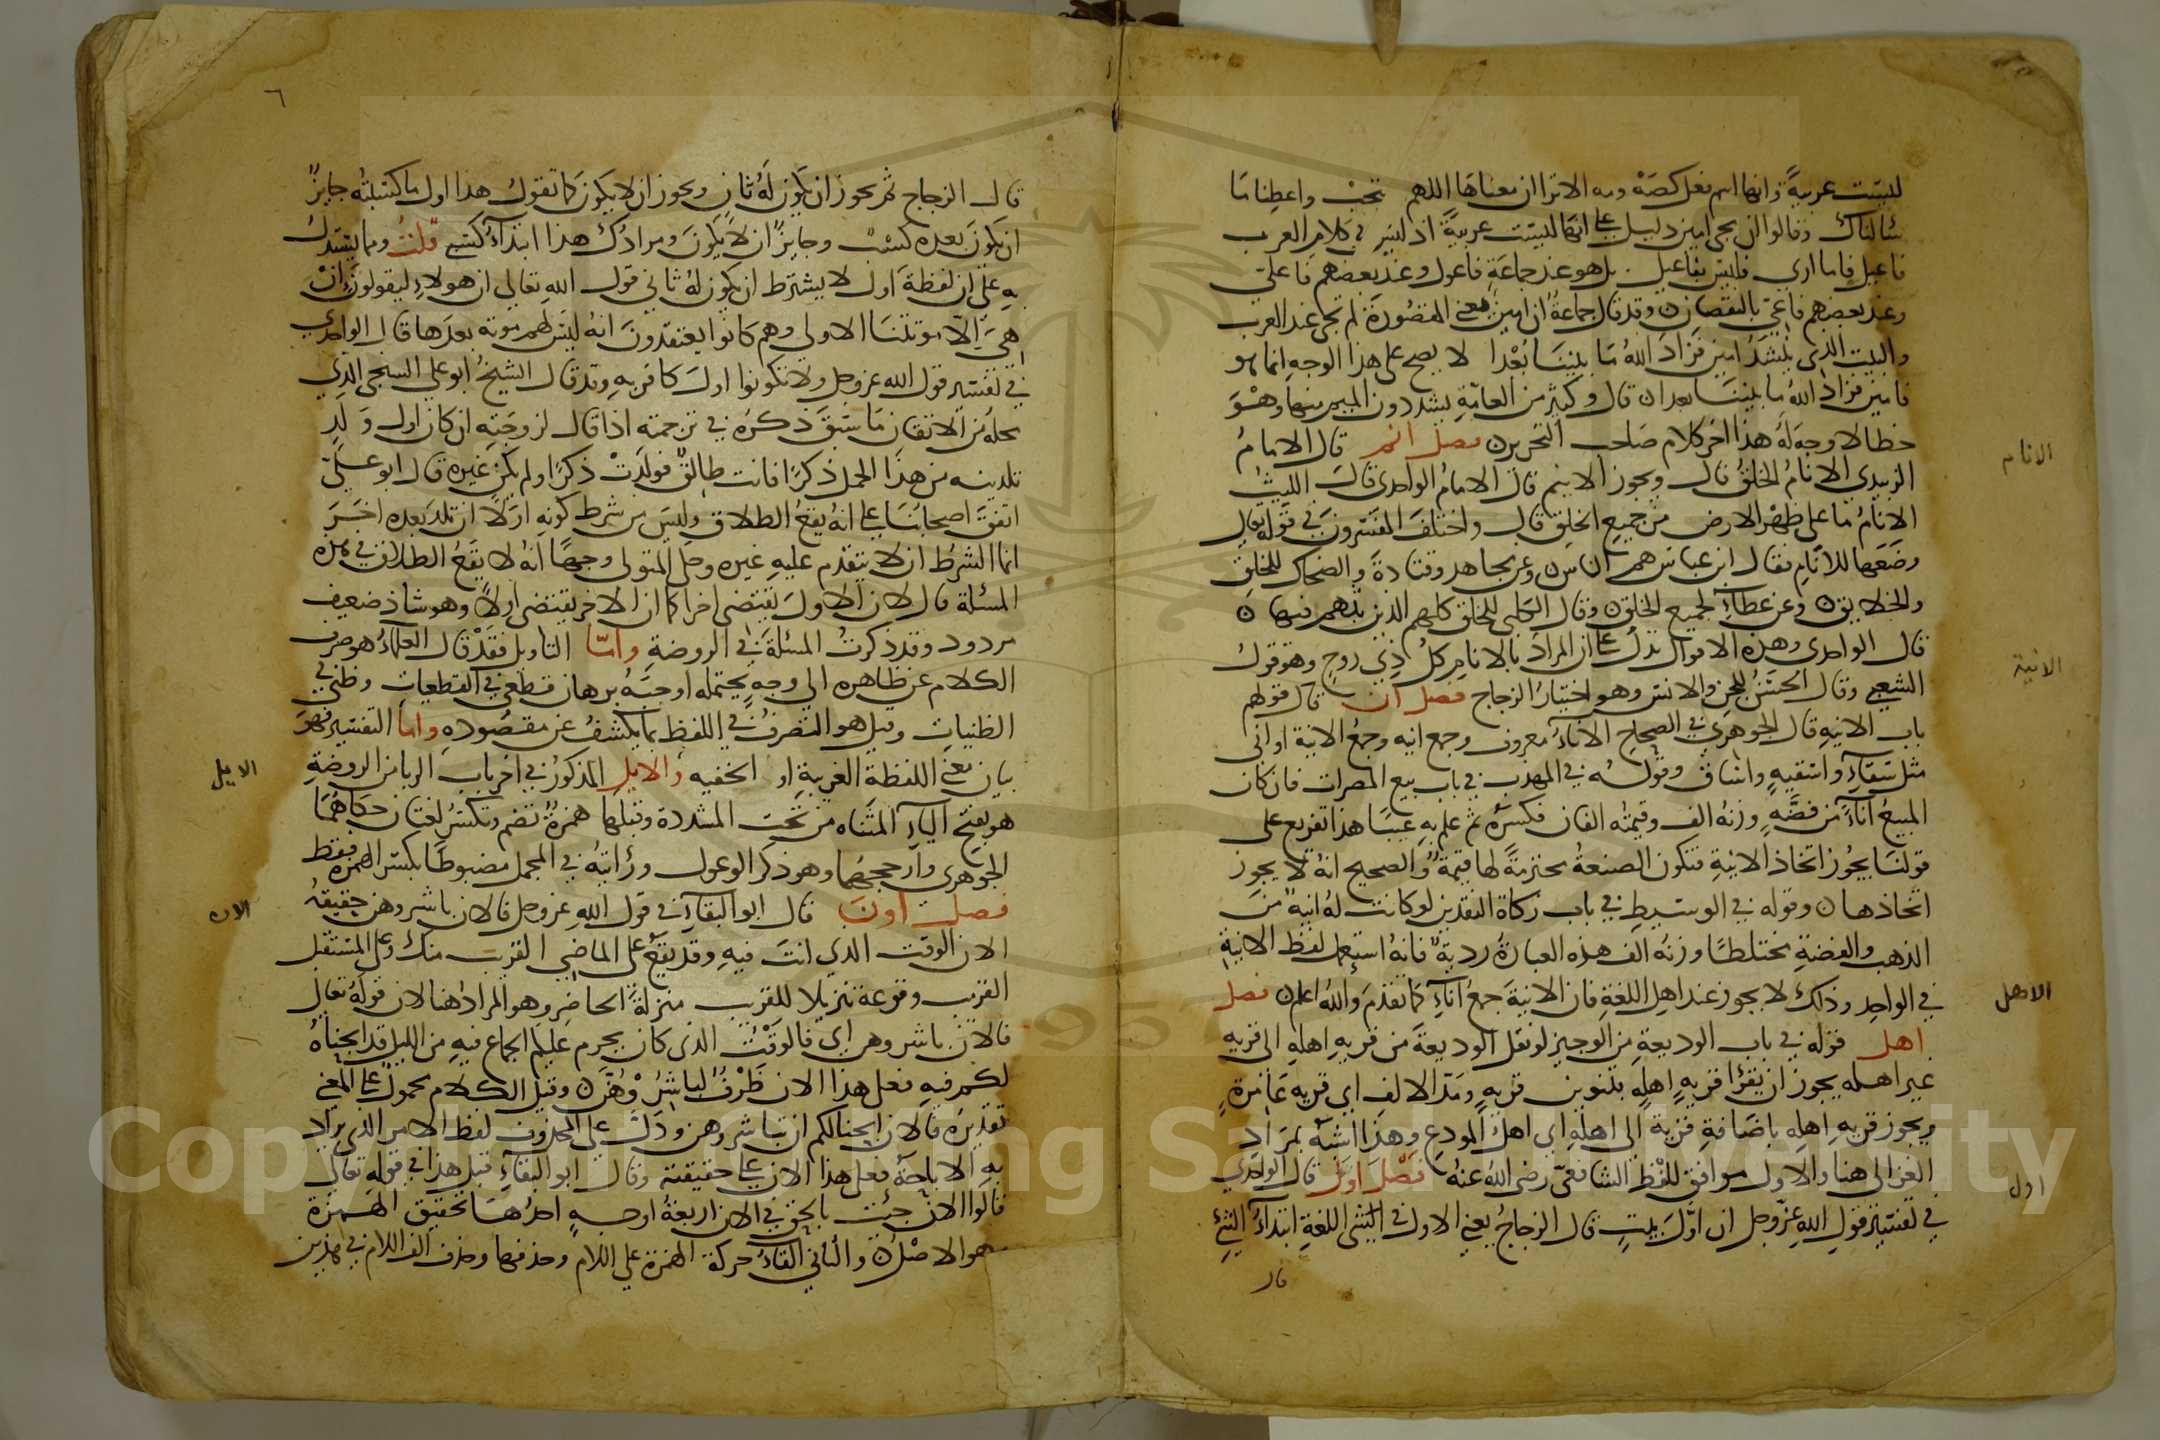 ليست عربية وانها اسم فعل كصه ومه الاترا ان معناها اللهم تحب واعطنا ما
سالناك وقالوا ان يجي امين دليل على انها ليست عربية اذ ليس في كلام العرب
فاعيل فاما اري فليس بفاعيل بل هو عند جماعة فاعول وعند بعضهم فاعلى
وعند بعضهم فاعي بالنقصان وقد قال جماعة ان امين يعني المقصورة لم تجئ عند العرب
والبيت الذي ينشد امين فزاد الله ما بيننا بعدا لا يصح على هذا الوجه انما هو
فامين فزاد الله ما بيننا بعدا قال وكثير من العامة يشددون الميم منها وهو
خطا لا وجه له هذا اخر كلام صاحب التحرير فصل انم قال الامام
الزبيدي الانام الخلق قال ويجوز الانيم قال الامام الواحدي قال الليث
الانام ما على ظهر الارض من جميع الخلق قال واختلف المفسرون في قوله تعالى
وضعها للانام فقال ابن عباس هم الناس وعن مجاهد وقتادة والضحاك للخلق
والخلايق وعن عطاء لجميع الخلق وقال الكلبي للخلق كلهم الذين بثهم فيها
قال الواحدي وهذه الاقوال تدل على ان المراد بالانام كل ذي روح وهو قول
الشعبي وقال الحسن للجن والانس وهو اختيار الزجاج فصل ان قال قولهم
باب الانيه قال الجوهري في الصحاح الاناء معروف وجمع انيه وجمع الانية اواني
مثل سقاء واسقيه واساق وقوله في المهذب في باب بيع المصرات فان كان
المبيع اناء من فضة وزنه الف وقيمته الفان فكسره ثم علم به عيبا هذا تفريع على
قولنا يجوز اتخاذ الانية فتكون الصنعة محترمة لها قيمة والصحيح انه لا يجوز
اتخاذها وقوله في الوسيط في باب زكاة النقدين لو كانت له انية من
الذهب والفضة مختلطا وزنه الف هذه العبارة ردية فانه استعمل لفظ الانية
في الواحد وذلك لا يجوز عند اهل اللغة فان الانية جمع اناء كما تقدم والله اعلم فصل
اهل قوله في باب الوديعة من الوجيز لو نقل الوديعة من قريه اهله الى قريه
غير اهله يجوز ان يقرا قرية اهله بتنوين قرية ومد الالف اي قرية عامرة
ويجوز قريه اهله باضافة قرية الى اهله اي اهل المودع وهذا اشبه بمراد
الغزالي هنا والاول موافق للفظ الشافعي رضي الله عنه فصل اول قال الواحدي
في تفسير قول الله عز وجل ان اول بيت قال الزجاج يعني الاول في اللغة ابتداء الشئ
قال
الانام
الانية
الاهل
اول
٦
قال الزجاج ثم يجوز ان يكون له ثان ويجوز ان لا يكون كما تقول هذا اول ما كسبته جايز
ان يكون بعده كسب وجايز ان لا يكون ومرادك هذا ابتداء كسبي قلت ومما يستدل
به على ان لفظة اول لا يشترط ان يكون له ثاني قول الله تعالى ان هولاء ليقولون ان
هي الا موتتنا الاولى وهم كانوا يعتقدون انه ليس لهم موتة بعدها قال الواحدي
في تفسير قول الله عز وجل ولا تكونوا اول كافر به وقد قال الشيخ ابو علي السنجي الذي
محله من الاتقان ما سبق ذكره في ترجمته اذا قال لزوجته ان كان اول ولد
تلدينه من هذا الحمل ذكرا فانت طالق فولدت ذكرا ولم يكن غيره قال ابو علي
اتفق اصحابنا على انه يقع الطلاق وليس من شرط كونه اولا ان تلد بعده اخر
انما الشرط ان لا يتقدم عليه غيره وحكى المتولي وجها انه لا يقع الطلاق في هذه
المسئلة قال لان الاول يقتضي اخرا كما ان الاخر يقتضي اولا وهو شاذ ضعيف
مردود وقد ذكرت المسئلة في الروضة واما التاويل فقد قال العلماء هو صرف
الكلام عن ظاهره الى وجه يحتمله اوجبه برهان قطعي في القطعيات وظني في
الظنيات وقيل هو التصرف في اللفظ بما يكشف عن مقصوده واما التفسير فهو
بيان معنى اللفظة الغريبة او الخفيه والايل المذكور في اخر باب الربا من الروضة
هو بفتح الياء المثناه من تحت المشددة وقبلها همزة تضم وتكسر لغتان حكاهما
الجوهري وارجحهما وهو ذكر الوعول ورايته في المجمل مضبوطا بكسر الهمزة فقط
فصل اون قال ابو البقاء في قول الله عز وجل فالان باشروهن حقيقة
الان الوقت الذي انت فيه وقد يقع على الماضي القريب منك وعلى المستقبل
القريب وقوعه تنزيلا للقريب منزلة الحاضر وهو المراد هنا لان قوله تعالى
فالان باشروهن اي فالوقت الذي كان يحرم عليكم الجماع فيه من الليل قد ابحناه
لكم فيه فعلى هذا الان ظرف لباشروهن وقيل الكلام محمول على المعنى
تقديره فالان ابحنا لكم ان تباشروهن ودل على المحذوف لفظ الامر الذي يراد
به الاباحة فعلى هذا الان على حقيقته وقال ابو البقاء قبل هذا في قوله تعالى
قالوا الان جئت بالحق في الان اربعة اوجه احدها تحقيق الهمزة
وهو الاصل والثاني القاء حركة الهمزة على اللام وحذفها وحذف الف اللام في هذين
الايل
الان
Copyright © King Saud University
1957